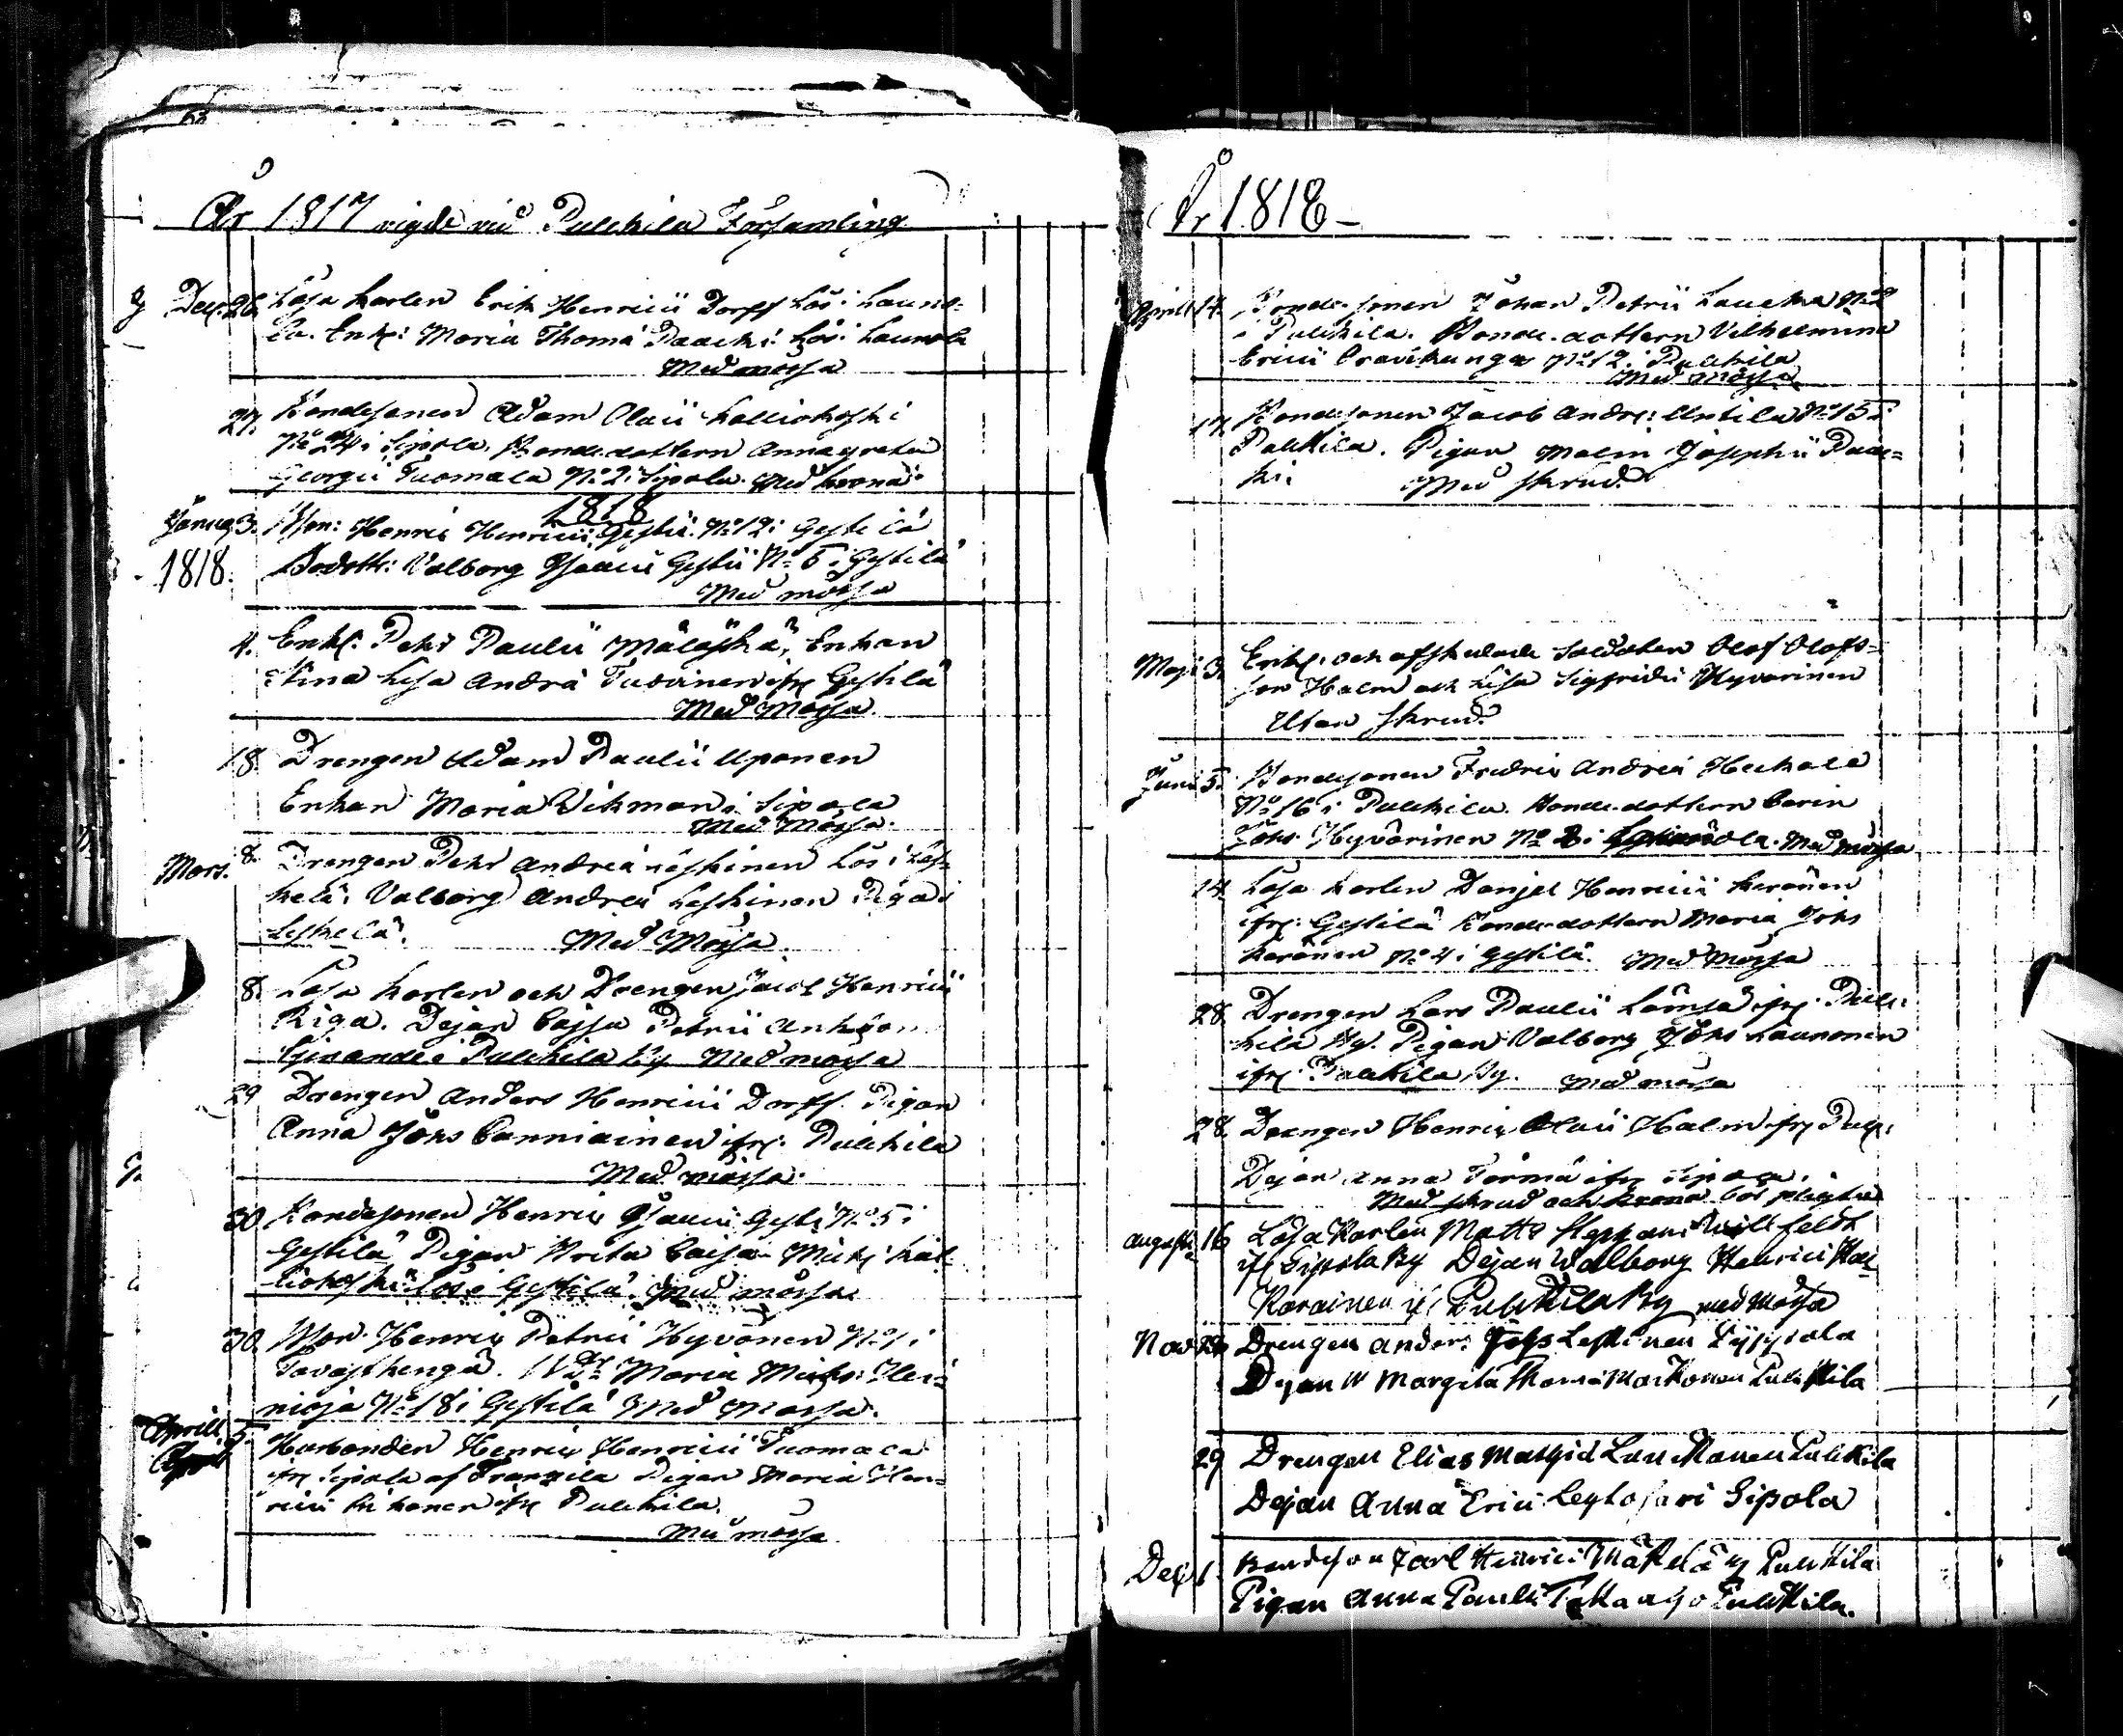 År 1817 vigde vid Pulckila Församling
Dec. 26. Lösa karlen Erik Henricii Dorff Lös i Launo-
la. Enk: Maria Thomæ Paacki Lös i Launola
Med mössa
27. Bondesonen Adam Olaii Kalliokoski
No 24 i Sipola. Bonde dottern Annagreta
Georgii Tuomala No 2 i Sipola. Med krona
1818
Janua 3. Bson: Henric Henricii Gestii No 12 i Gestilä
1818. Bodottr: Valborg Isaacii Gestii No 5 i Gestilä
Med mössa
4. Enkl. Pehr Paulii Mäläskä, Enkan
Stina Lisa Andræ Tusvinen ifr Gestilä
Med Mössa
18. Drengen Adam Paulii Uponen
Enkan Maria Wikman i Sipola
Med Mössa.
Mars. 8. Drengen Pehr Andreæ Leskinen Lös i Les-
kelä. Valborg Andreæ Leskinen Piga i
Leskelä. Med Mössa.
8. Lösa karlen och Drengen Jacob Henricii
Riga. Dejan Cajsa Petrii
Pulckila By Med mössa
29 Drengen Anders Henricii Dorff. Pigan
Anna Johs Canniainen ifr. Pulckila
Med mössa.
30. Bondesonen Henric Isaacii Gesti No 5 i
Gestilä Pigan Brita Caisa Mich: Kal-
liokoski Lös i Gestilä. Med mössa
30. Bson. Henric Petrii Hyvönen No 1 i
Tavastkenga. Bdr Maria Michs:
nioja No 18 i Gestilä Med Mössa.
Aprill 5. Husbonden Henric Henricii Tuomala
April ifr Sipola af Frantzila Pigan Maria Hen-
ricii ifr Pulckila.
Med mössa
År 1818
Aprill 14. Bonde sonen Johan Petrii Laucka No 2
i Pulckila. Bonde dottern Vilhelmina
Ericii No 12 i Pulckila
Med mössa
17. Bondesonen Jacob Andr: Antila No 15 i
Pulkkila. Pigan Malin Josephii Paac-
ki. Med skrud
Maji 3. Enkl. och afskedade Soldaten Olof Olofs-
son Halm och Lisa Sigfridii Hyvarinen
Utan skrud.
Juni 5. Bondesonen Fredric Andreæ Heckala
No 16 i Pulckila. Bonde dottern Carin
Johs Hyvärinen No 2 i Med mössa
14. Lösa karlen Danjel Henricii Keränen
ifr. Gestilä Bondedottern Maria Johs
Keränen No 4 i Gestilä. Med Mössa
28. Drengen Lars Paulii Lämsä ifr. Pulc-
kila By. Pigan Valborg Johs Launonen
ifr. Pulckila By. Med mössa
28. Drengen Henric Olaii Halm ifr Pulc.
Dejan Anna Törmä ifr Sipola.
Med skrud och krona
Augusti 16 Lösa Karlen Matts Stephani Willfeldt
ifr Sipola By Dejan Walborg Henrici Kar
Karainen ifr Pulkkila By med Mössa
Nov 26 Drengen Anders Johs Leskinen
Dejan Margeta Thomæ Markonen Pulkkila
29 Drengen Elias Laukkanen Pulkkila
Dejan Anna Ericii Leptojärvi Sipola
Dec 6. Bondeson Carl Henrici Mäkelä ifr Pulkkila
Pigan Anna Paulii Takaajo Pulkkila.